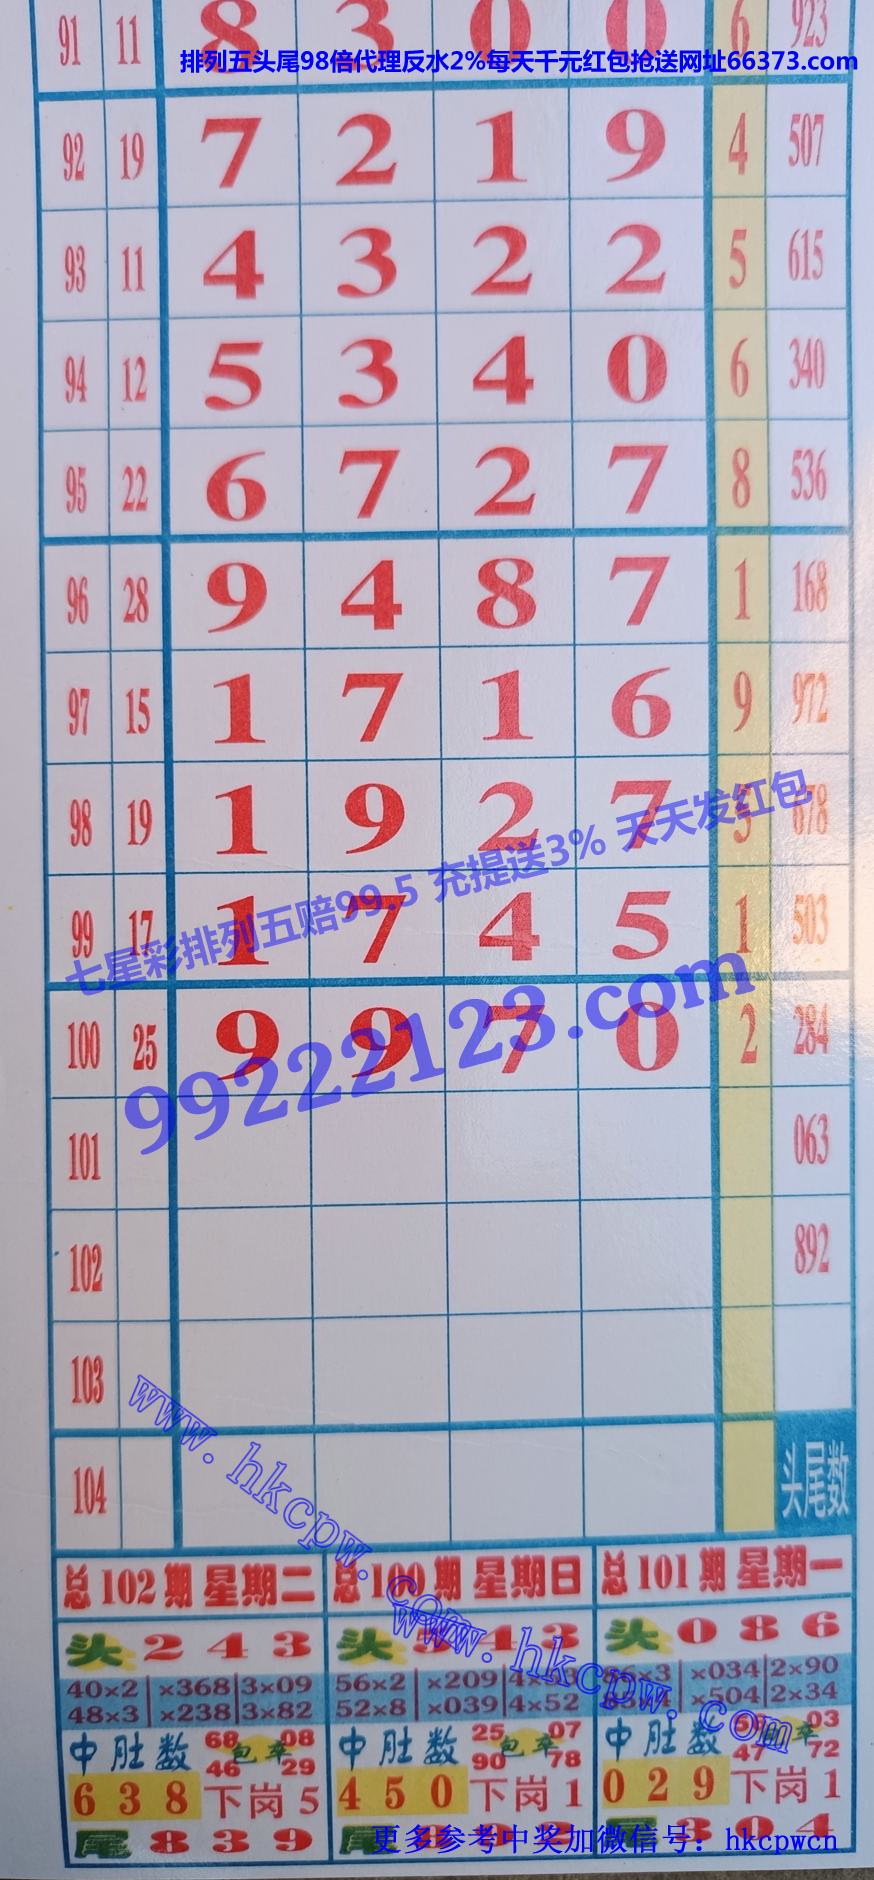 91 11 8 3 0 0 6 923
排列五头尾98倍代理反水2%每天千元红包抢送网址66373.com
92 19 7 2 1 9 4 507
93 11 4 3 2 2 5 615
94 12 5 3 4 0 6 340
95 22 6 7 2 7 8 536
96 28 9 4 8 7 1 168
97 15 1 7 1 6 9 972
98 19 1 9 2 7 3 678
七星彩排列五赔99.5 充提送3% 天天发红包
99 17 1 7 4 5 1 503
99222123.com
100 25 9 9 7 0 2 284
101 063
102 892
103
www.hkcpw.com
104 头尾数
总102期 星期二 总100期 星期日 总101期 星期一
www.hkcpw.com
头 2 4 3 头 4 3 头 0 8 6
40×2 ×368 3×09 56×2 ×209 ×3 ×034 2×90
48×3 ×238 3×82 52×8 ×039 4×52 ×504 2×34
中肚数 68 包牵 08 中肚数 25 包牵 07 中肚数 03
46 29 90 78 47 72
6 3 8 下岗5 4 5 0 下岗1 0 2 9 下岗1
尾 8 3 9 尾 尾 3 0 4
更多参考中奖加微信号: hkcpwcn